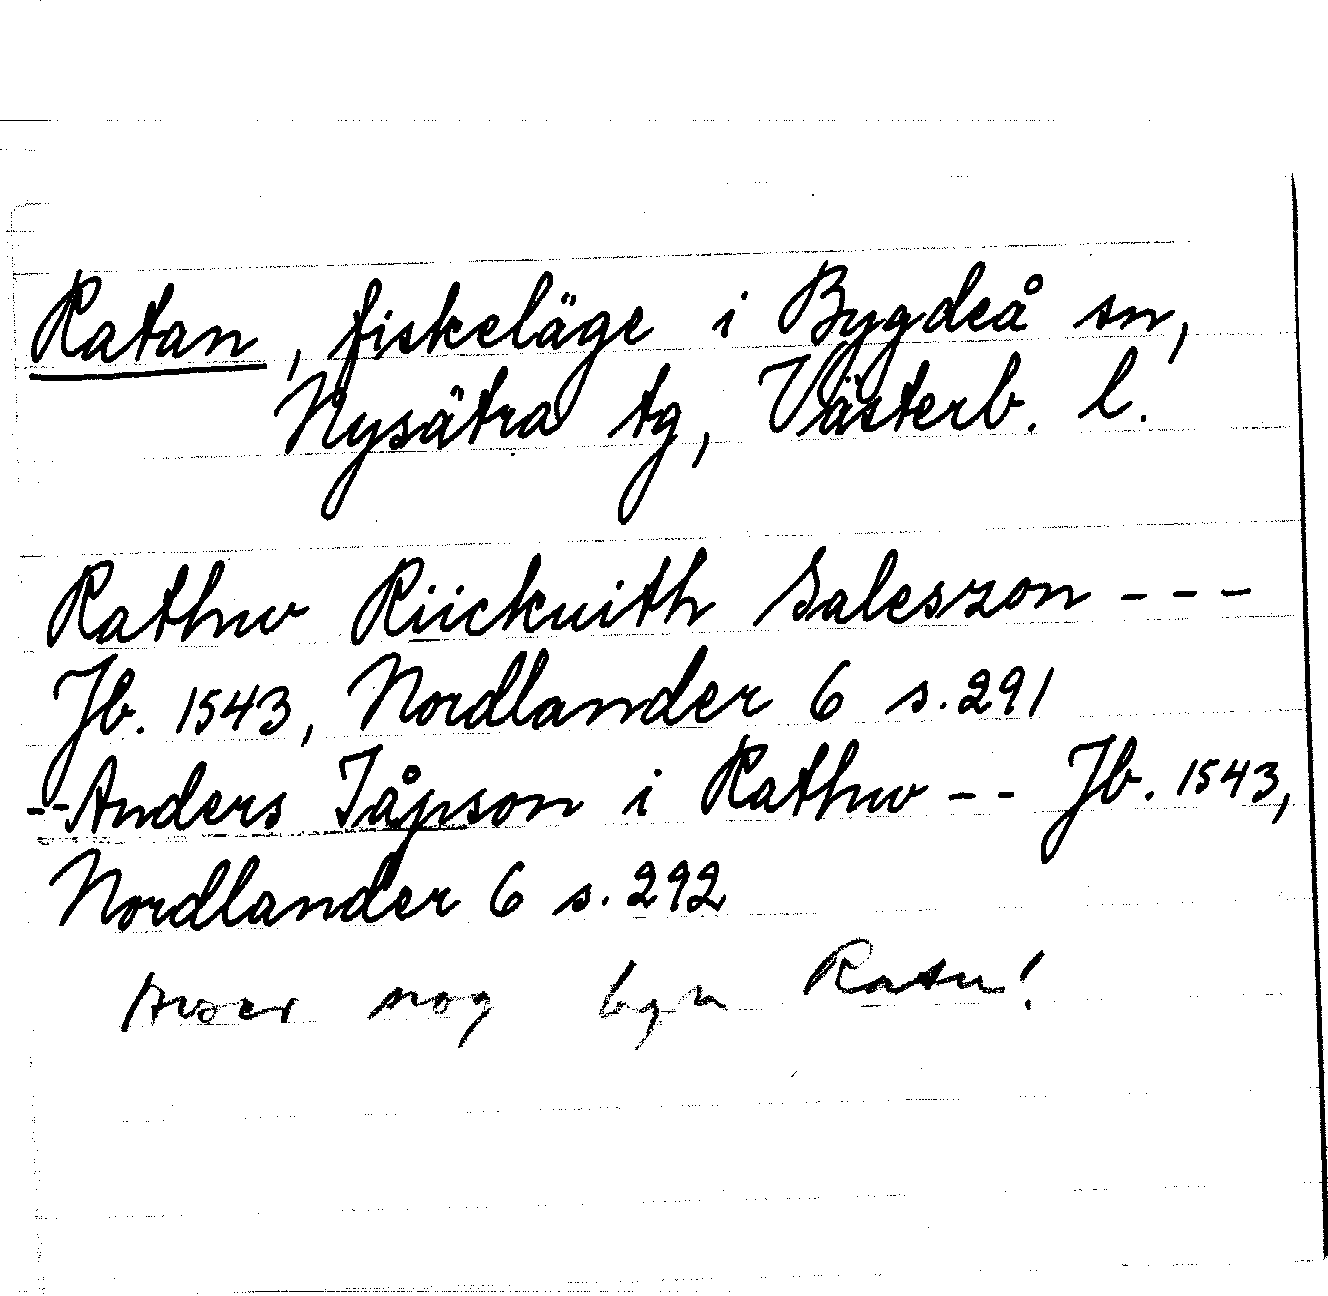 Ratan, fiskeläge i Bygdeå sn,
Nysätra tg, Västerb. l.
Rathw Riickuith Saleszon ---
Jb. 1543, Nordlander 6 s. 291
-- Anders Jåpson i Rathw -- Jb. 1543,
Nordlander 6 s. 292
Avser nog byn Ratu!